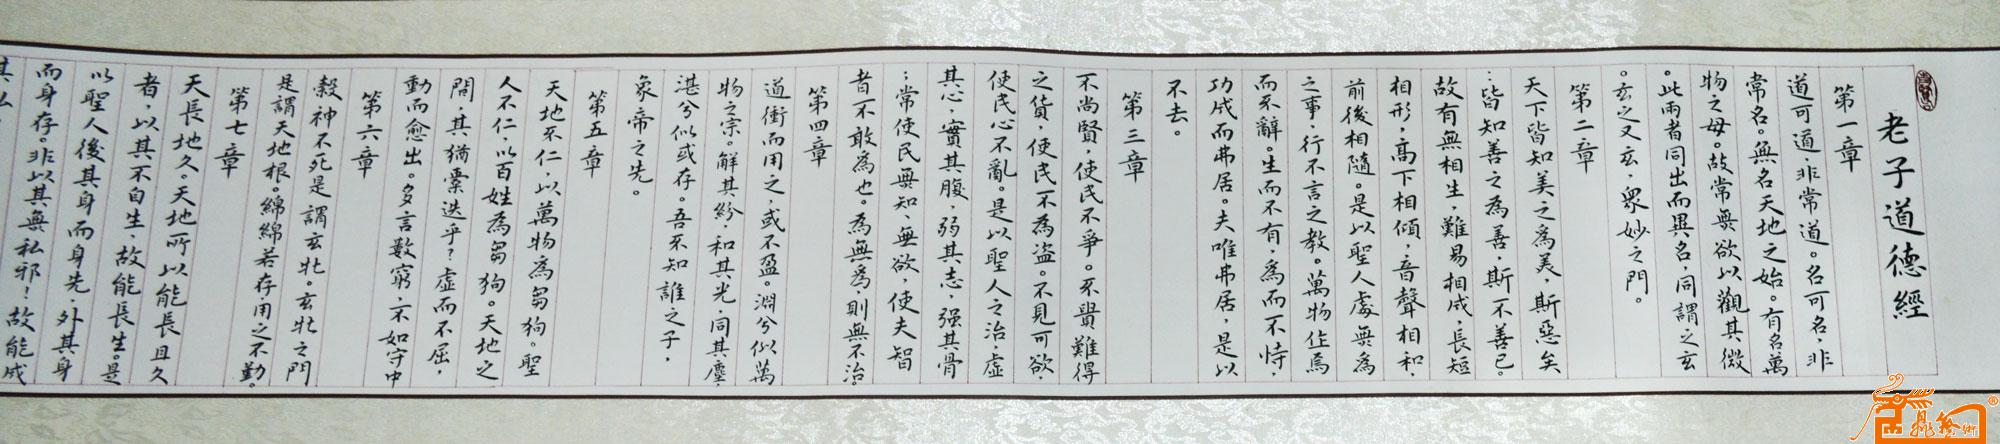 老子道德經
第一章
道可道，非常道。名可名，非
常名。無名天地之始。有名萬
物之母。故常無欲以觀其微
。此兩者同出而異名，同謂之玄
。玄之又玄，衆妙之門。
第二章
天下皆知美之為美，斯惡矣
：皆知善之為善，斯不善已。
故有無相生，難易相成，長短
相形，高下相傾，音聲相和，
前後相隨。是以聖人處無為
之事，行不言之教。萬物作焉
而不辭。生而不有，為而不恃，
功成而弗居。夫唯弗居，是以
不去。
第三章
不尚賢，使民不爭。不貴難得
之貨，使民不為盜。不見可欲，
使民心不亂。是以聖人之治，虛
其心，實其腹，弱其志，强其骨
；常使民無知、無欲，使夫智
者不敢為也。為無為，則無不治
第四章
道衝而用之，或不盈。淵兮似萬
物之宗。解其紛，和其光，同其塵，
湛兮似或存。吾不知誰之子，
象帝之先。
第五章
天地不仁，以萬物為芻狗。聖
人不仁，以百姓為芻狗。天地之
間，其猶橐迭乎？虛而不屈，
動而愈出。多言數窮，不如守中
第六章
穀神不死是謂玄牝。玄牝之門
是謂天地根。綿綿若存，用之不勤。
第七章
天長地久。天地所以能長且久
者，以其不自生，故能長生。是
以聖人後其身而身先，外其身
而身存。非以其無私邪！故能成
其私